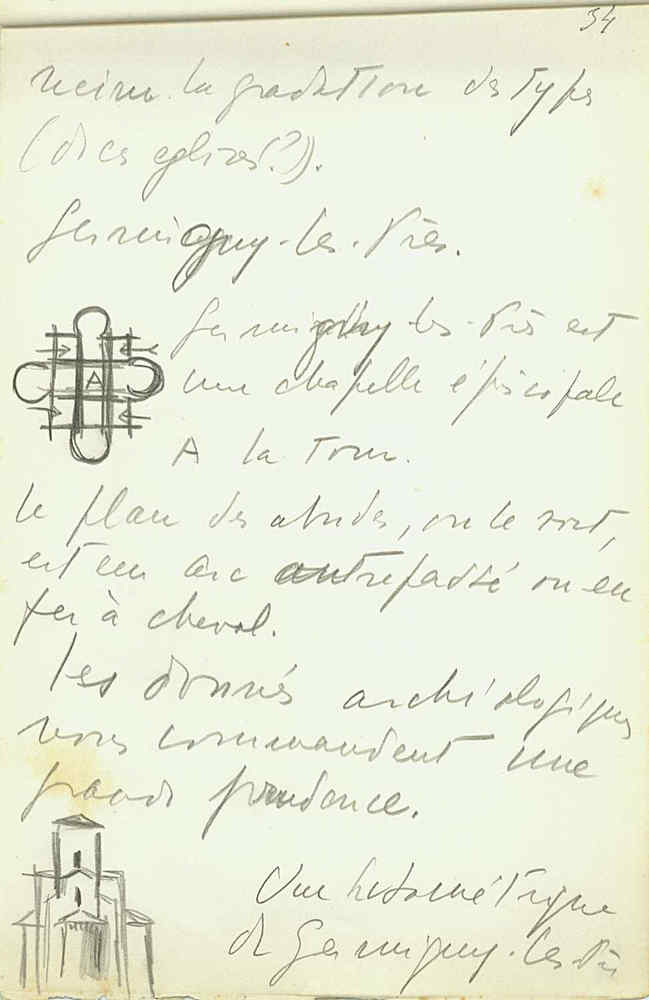 34
la gradation des types
(de ces eglises?).
Germigny-les-Près.
Germigny-les-Près est
une chapelle épiscopale
A
A la Tour.
le plan des absides, on le sait,
est en arc outrepassé ou en
fer à cheval.
Les donnés archéologiques
nous commandent une
grande prudence.
Vue isométrique
de Germigny-les-Près